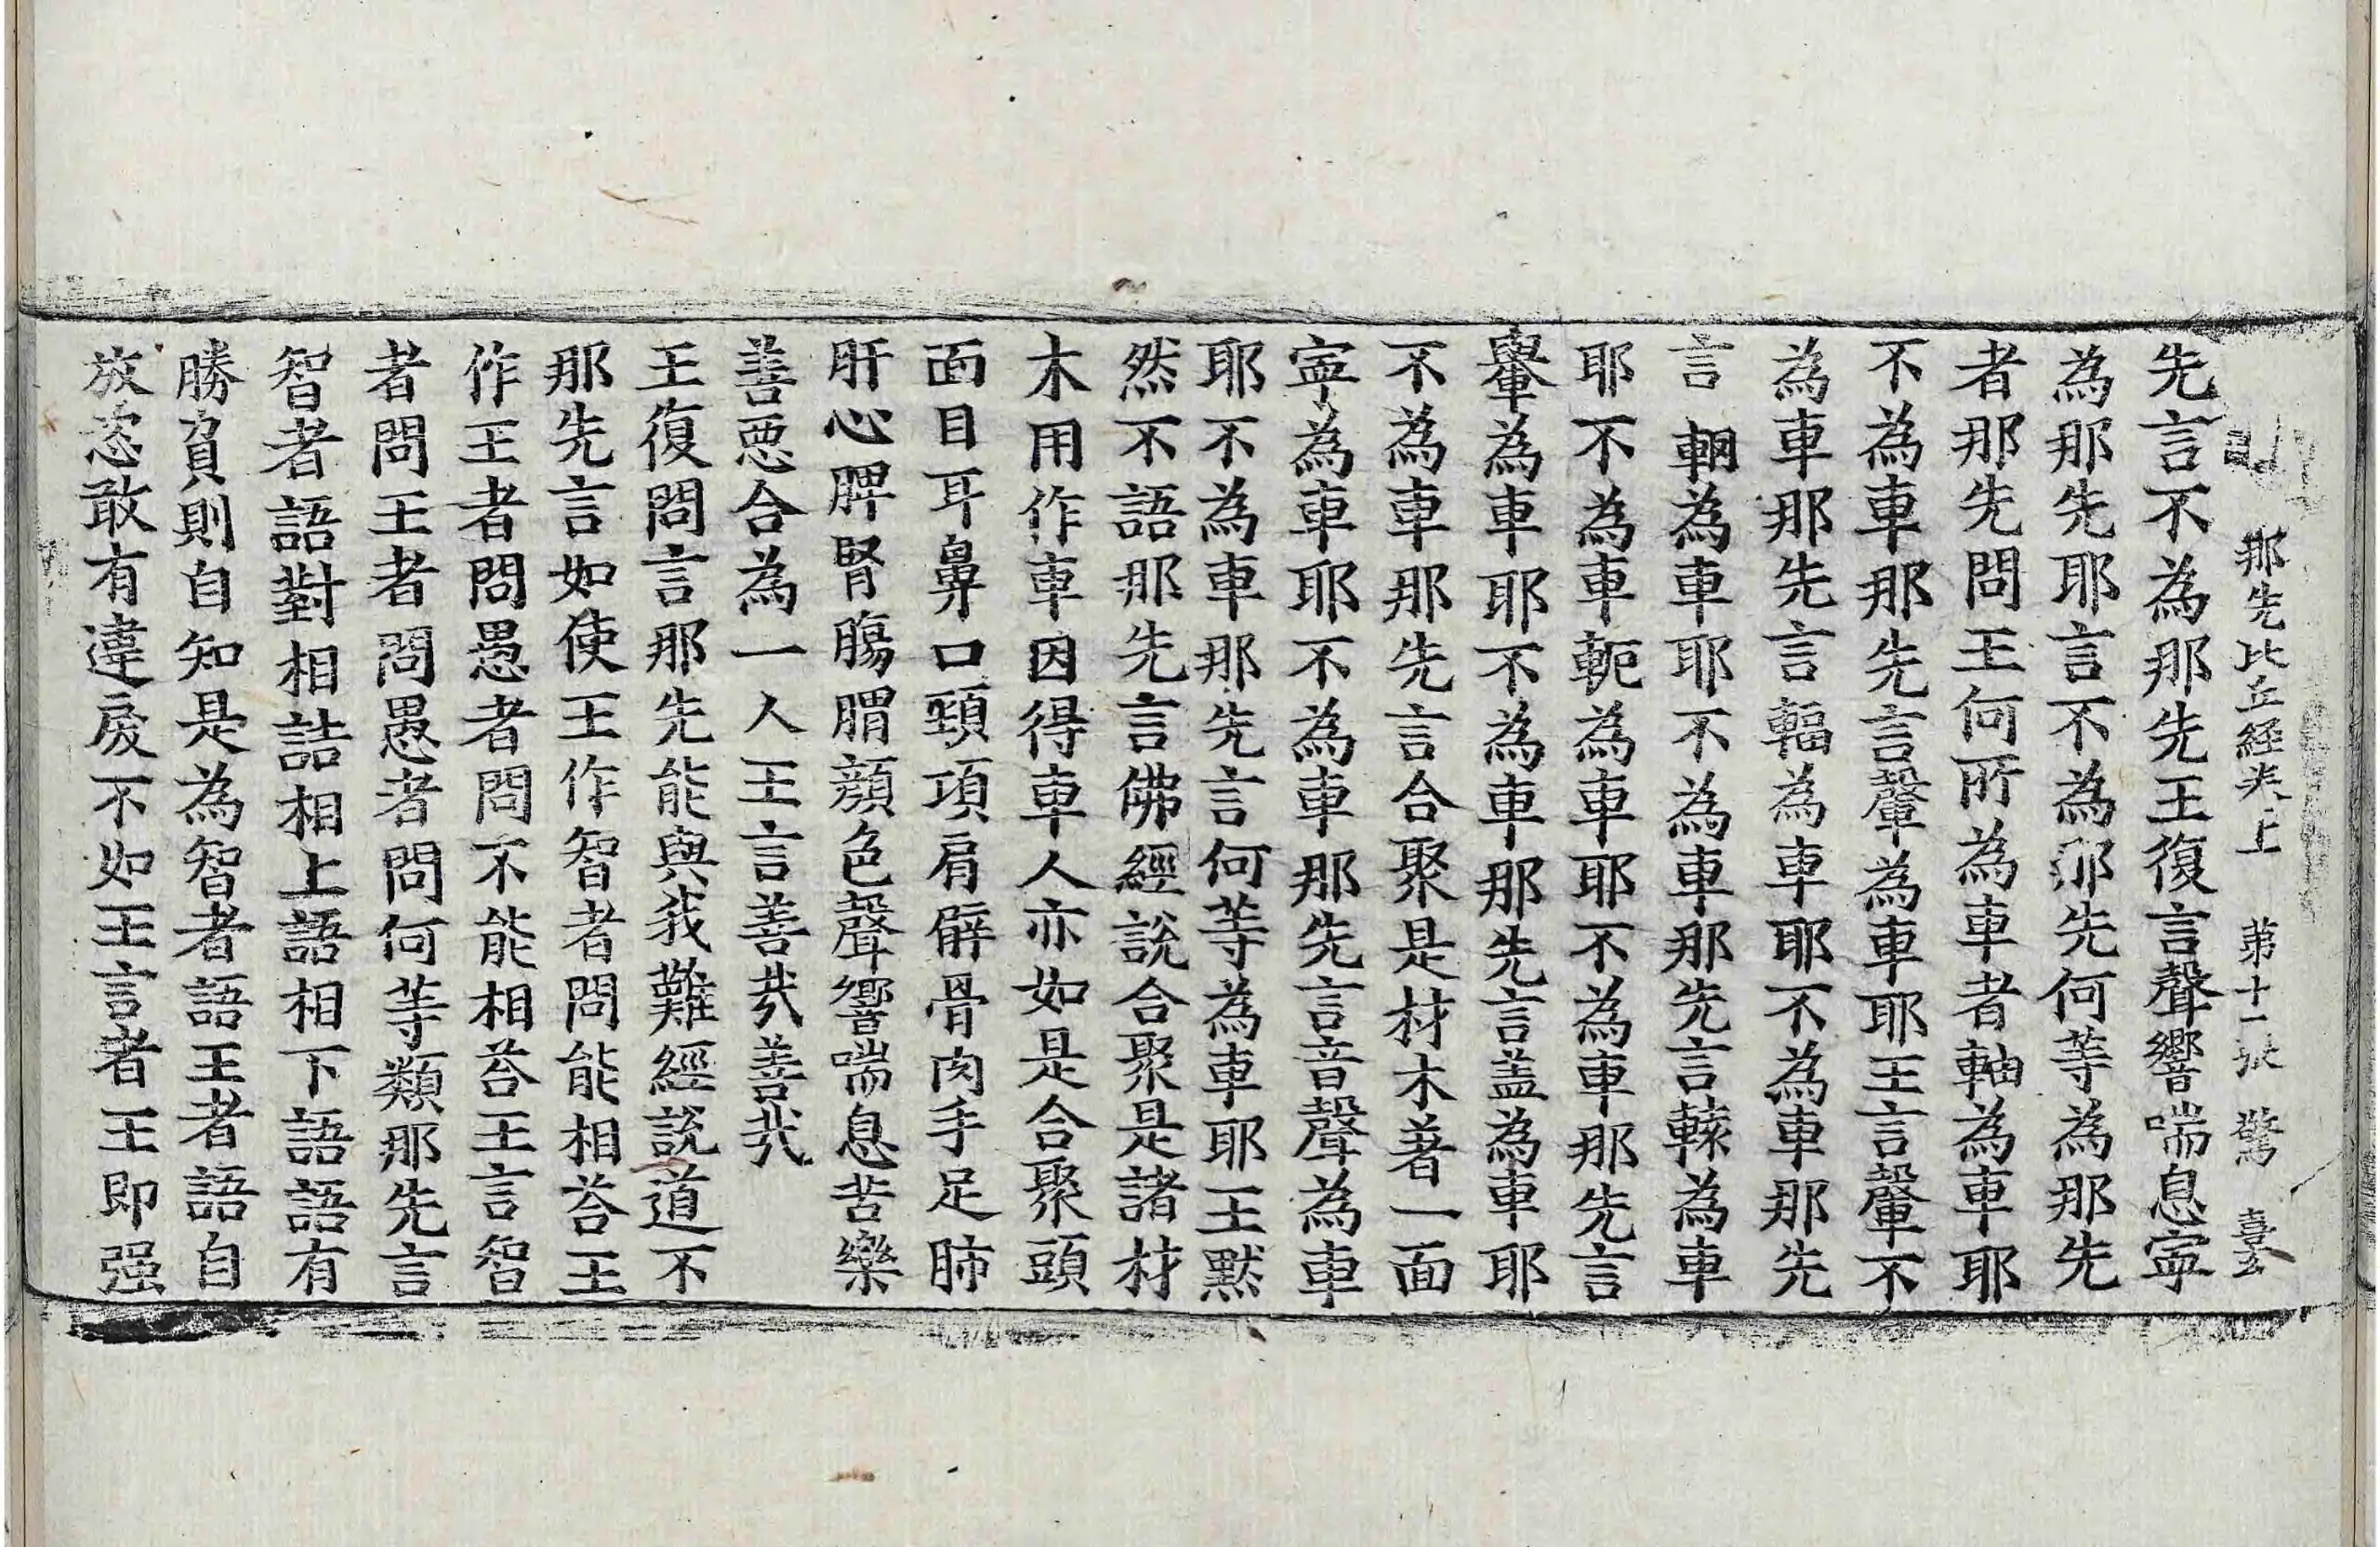 那先比丘經卷上　第十一張　驚　喜
先言不為那先王復言聲響喘息寧
為那先耶言不為那先何等為那先
者那先問王何所為車者軸為車耶
不為車那先言𨍏為車耶王言𨍏不
為車那先言輻為車耶不為車那先
言輞為車耶不為車那先言轅為車
耶不為車軛為車耶不為車那先言
轝為車耶不為車那先言盖為車耶
不為車那先言合聚是材木著一面
寧為車耶不為車那先言音聲為車
耶不為車那先言何等為車耶王默
然不語那先言佛經說合聚是諸材
木用作車因得車人亦如是合聚頭
面目耳鼻口頸項肩臂骨肉手足肺
肝心脾腎膓胃顔色聲響喘息苦樂
善惡合為一人王言善哉善哉
王復問言那先能與我難經說道不
那先言如使王作智者問能相荅王
作王者問愚者問不能相荅王言智
者問王者問愚者問何等類那先言
智者語對相詰相上語相下語語有
勝負則自知是為智者語王者語自
放恣敢有違戾不如王言者王即强